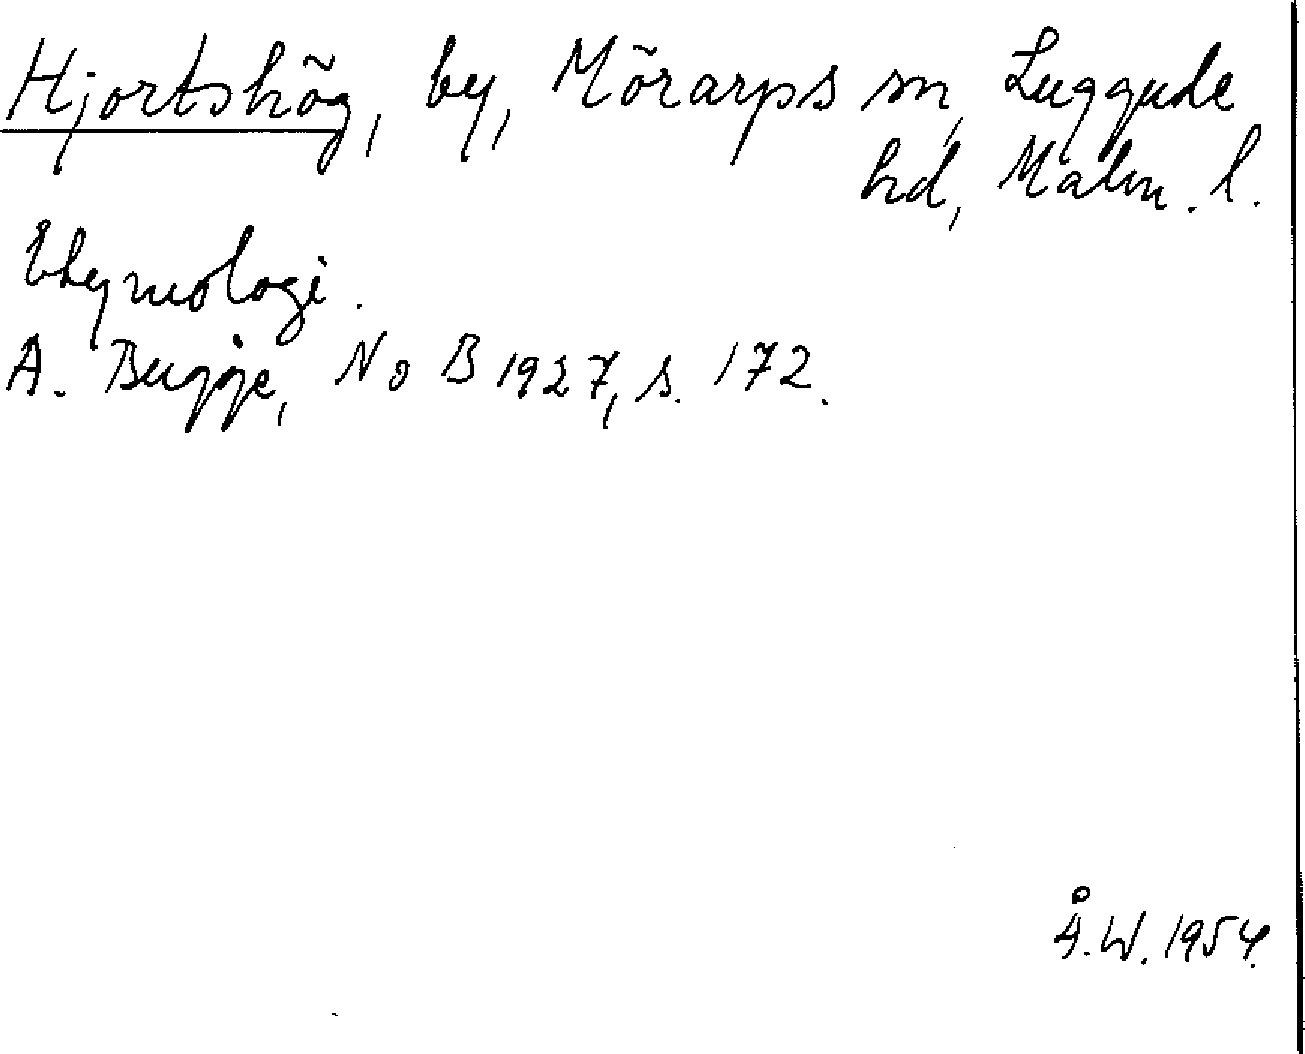 Hjortshög, by, Mörarps sn, Luggude
hd, Malm. l.
Etymologi.
A. Bugge, NoB 1927, s. 172.
Å.W. 1954.